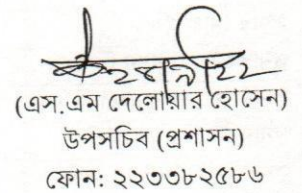 (এস.এম দেলোয়ার হোসেন)
উপসচিব (প্রশাসন)
ফোন: ২২৩৩৮২৫৮৬